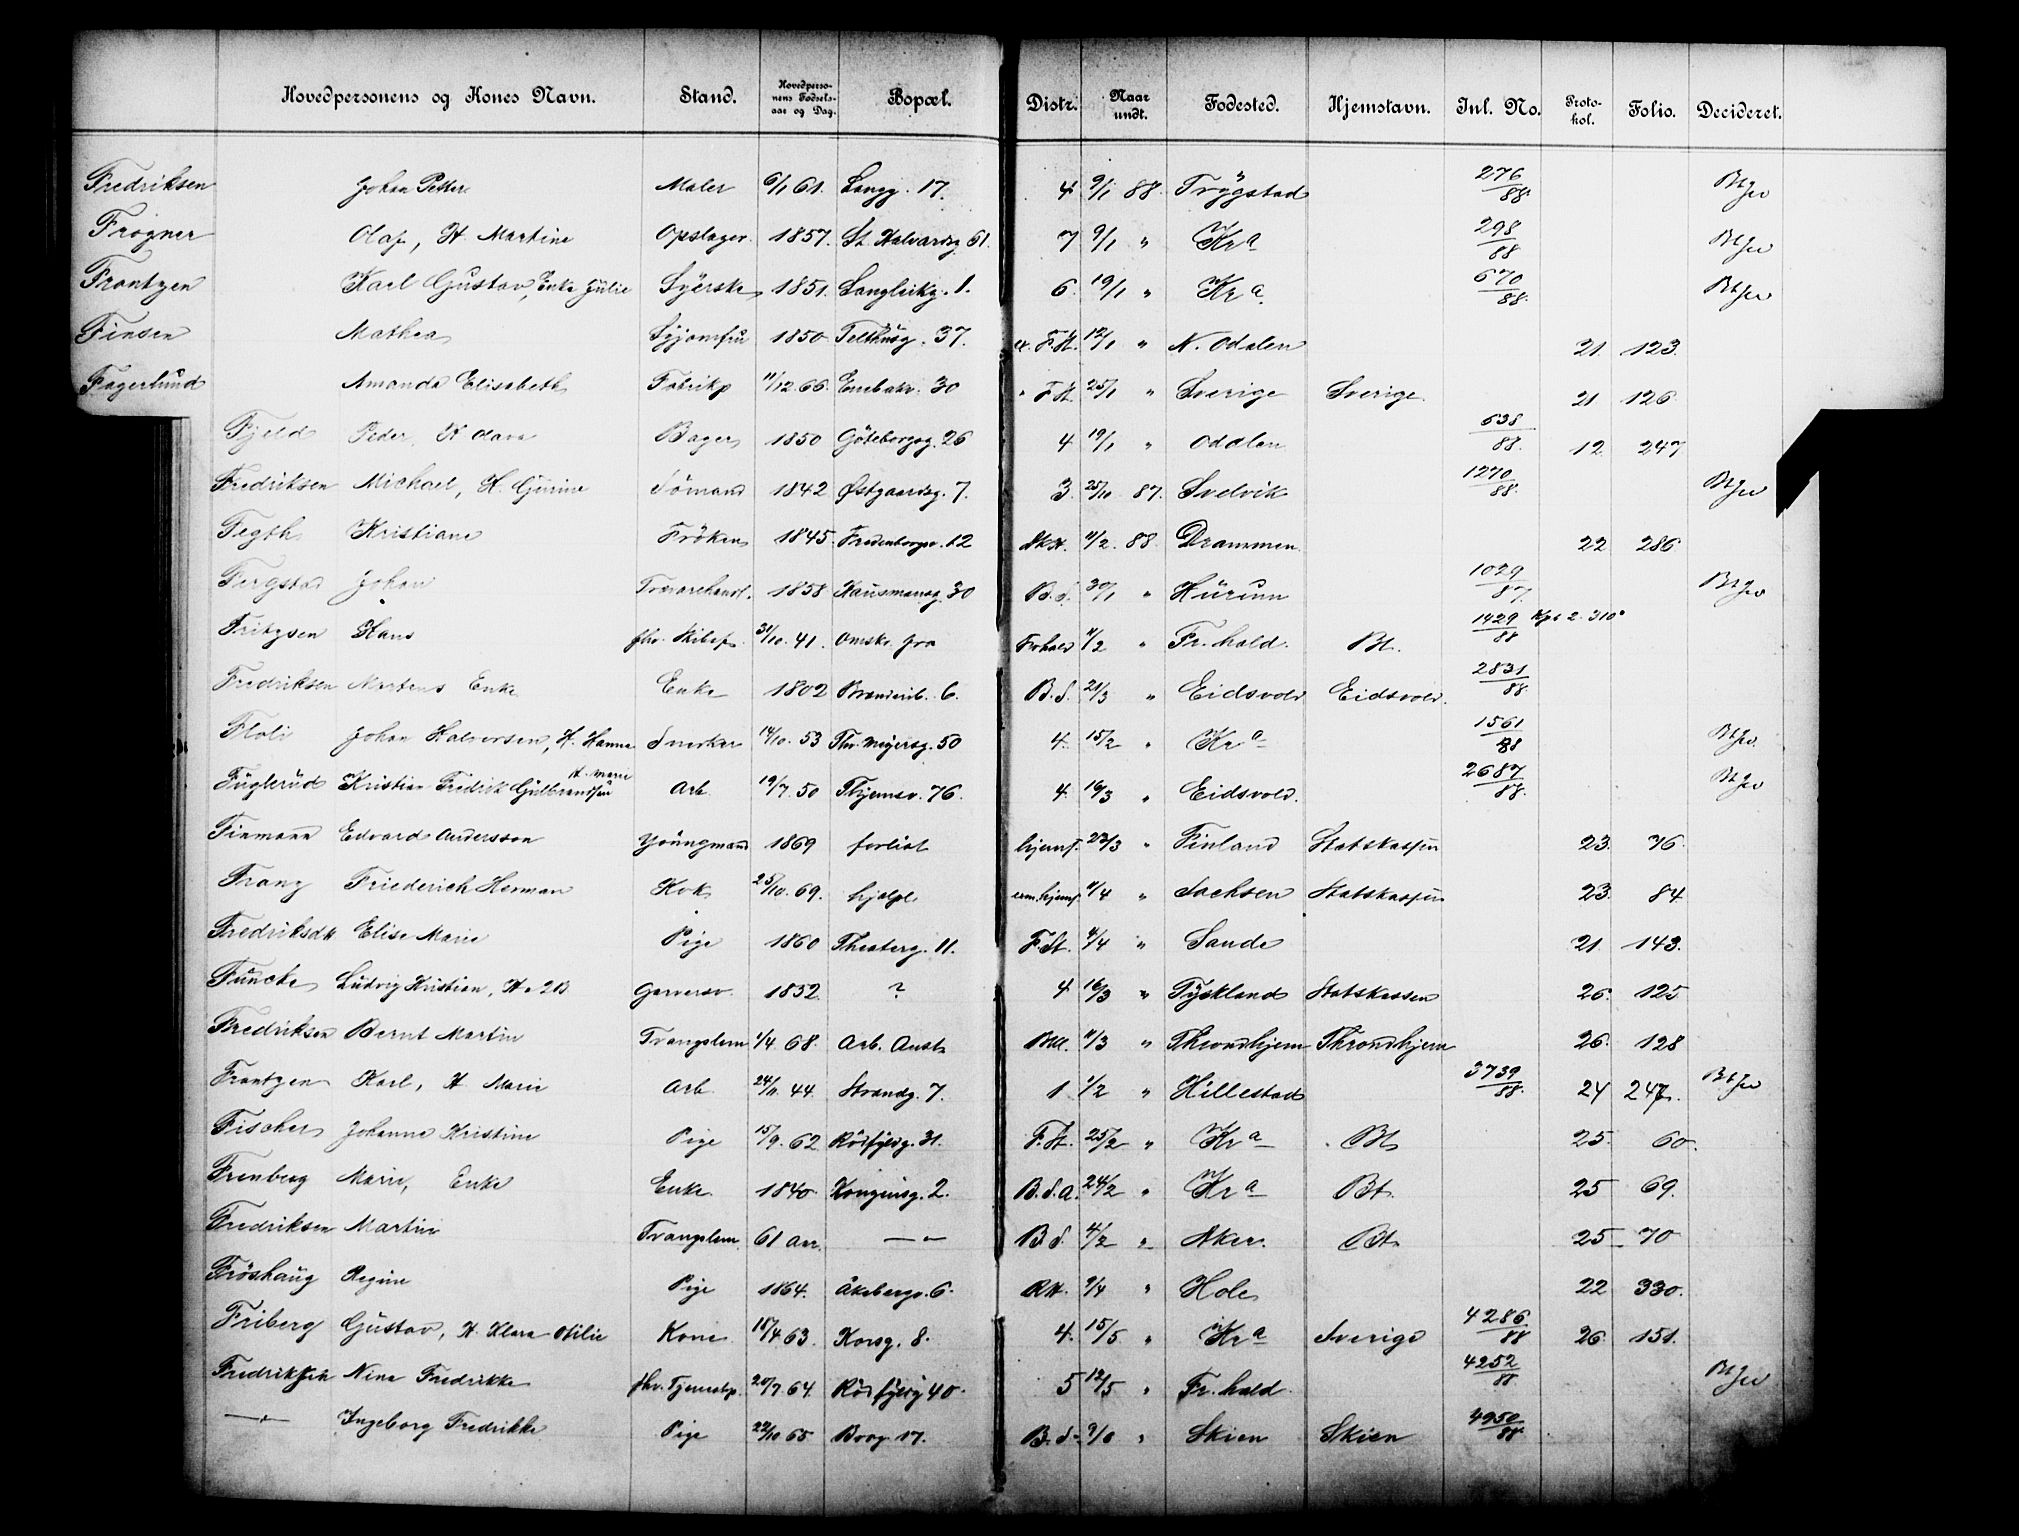 Hovedpersonens og Kones Navn. Stand. Hovedpersonens Fødselsaar og Dag. Bopæl. Distr. Naar undt. Fødested. Hjemstavn. Inl. No. Protokol. Folio. Decideret.
Fredriksen Johan Petter Maler 6/1 61. Langg. 17. 4 9/1 88. Trygstad 276/88.
Frogner Olaf, H. Martine Opslager. 1857. St. Halvardsg. 61. 7 9/1 " Kra 298/88
Frantzen Karl Gustav, Enke Julie Syerske 1851. Langleikg. 1. 6. 19/1 " Kra. 670/88.
Finsen Mathea Syjomfru 1850 Telthusg. 37. F.St. 12/1 " N. Odalen 21. 123.
Fagerlund Amanda Elisabeth Fabrikp 11/12 66. Enebakv. 30 " F.St. 25/1 " Sverige Sverige 21. 126.
Fjeld Peder, Bager 1850 Göteborgsg. 26 4 19/1 " Odalen 638/88. 12 247
Fredriksen Michael, H. Gurine Sömand 1842 Østgaardsg. 7. 3. 25/10. 87. Svelvik 1270/88.
Fegth Kristiane Fröken 1845. Fredenborgv. 12 11/2. 88. Drammen 22 286
Fergstad Johan 1858. Hausmansg. 30 B.d. 30/1 " Hurum 1029/87.
Fritzsen Hans fhv. Skibsf. 31/10. 41. Omstr. Fr.hald 11/2 " Fr.hald. Bt. 1429/88 2. 310
Fredriksen Martens Enke Enke 1802 6. B.d. 21/3 " Eidsvold Eidsvold. 2831/88.
Floli Johan Halvorsen, H. Hanna Snedker 14/10. 53 Thv. Meyersg. 50 4. 15/2 " Kra 1561/88
Fuglerud Kristian Fredrik Gulbrandsen H. Marie Arb. 19/7. 50 76. 4. 16/3 " Eidsvold. 2687/88.
Finmann Edvard Andersson Youngmand 1869 forlist hjemf. 23/3 " Finland Statskassen 23. 36.
Franz Friederich Herman Kok 25/10. 69. hjemf. 11/4 " Sachsen Statskassen 23. 84
Fredriksdtr Elise Marie Pige 1860 Theaterg. 11. F.St. 4/4 " Sande 21. 143.
Funcke Ludvig Kristian, H. 2 B Garversv. 1852. ? 4 16/3 " Tyskland Statskassen 26. 125
Fredriksen Bernt Martin Tvangslem 1/4 68. Arb. Anst. 11/3 " Throndhjem Throndhjem 26. 128
Frantzen Karl, H. Marie Arb. 24/11. 44. Strandg. 7. 1 1/2 " Hillestad 3739/88. 24 247.
Fischer Johanne Kristine Pige 15/9. 62 31. F.St. 25/2 " Kra Bt 25. 60.
Frenberg Marie, Enke Enke. 1840 Kongensg. 2. B.d.a. 24/2 " Kra Bt. 25 69.
Fredriksen Martin Tvangslem. 61 aar. — " — B.d. 4/2 " Aker. Bt 25 70
Fröshaug Regine Pige 1864. Åkebergv. 6. 9/4 " Hole 22 330.
Friberg Gustav, H. Klara Otilie Kone 15/4 63. Korsg. 8. 4. 15/5 " Kra Sverige 4286/88 26. 151.
Fredriksen Nina Fredrikke fhv. 20/7. 64. 40. 5 12/5 " Fr.hald. 4252/88.
— " — Ingeborg Fredrikke Pige 22/10 65 Borg. 17. B.d. " Skien Skien 4950/88.